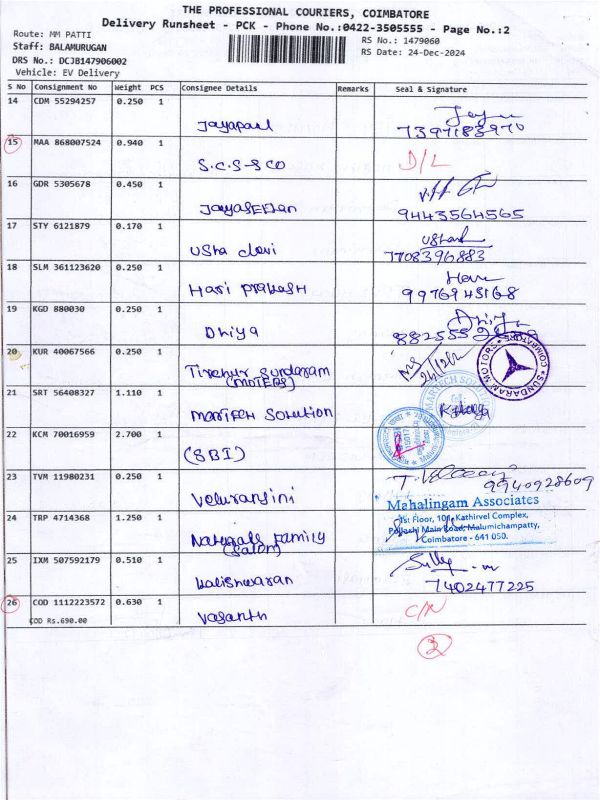 THE PROFESSIONAL COURIERS, COIMBATORE
Delivery Runsheet - PCK - Phone No.:0422-3505555 - Page No.:2
Route: MM PATTI
Staff: BALAMURUGAN
DRS No.: DCJB147906002
Vehicle: EV Delivery
RS No.: 1479060
RS Date: 24-Dec-2024
S No Consignment No Weight PCS Consignee Details Remarks Seal & Signature
14 CDM 55294257 0.250 1
Jayapaul 7397183970
15 MAA 868007524 0.940 1
S.C.S-S CO D/L
16 GDR 5305678 0.450 1
JayaSEElan 9443564565
17 STY 6121879 0.170 1
Usha devi 7708396883
18 SLM 361123620 0.250 1
Hari prakash 9976945168
19 KGD 880030 0.250 1
Dhiya
20 KUR 40067566 0.250 1
Sundaram
(MOTERS)
SUNDARAM MOTORS COIMBATORE
21 SRT 56408327 1.110 1
MARTECH SOLUTION
22 KCM 70016959 2.700 1
(SBI)
23 TVM 11980231 0.250 1
Veluransini 9940928609
24 TRP 4714368 1.250 1
Naturals Family
(Salon)
Mahalingam Associates
1st Floor, 101, Kathirvel Complex,
Pollachi Main Road, Malumichampatty,
Coimbatore - 641 050.
25 IXM 507592179 0.510 1
Kalishwaran 7402477225
26 COD 1112223572 0.630 1
COD Rs.690.00
Vasanth C/N
2